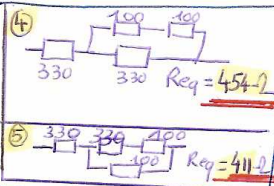 ④
100 100
330 330 Req = 454Ω
⑤
330 330 100
100 Req = 411Ω